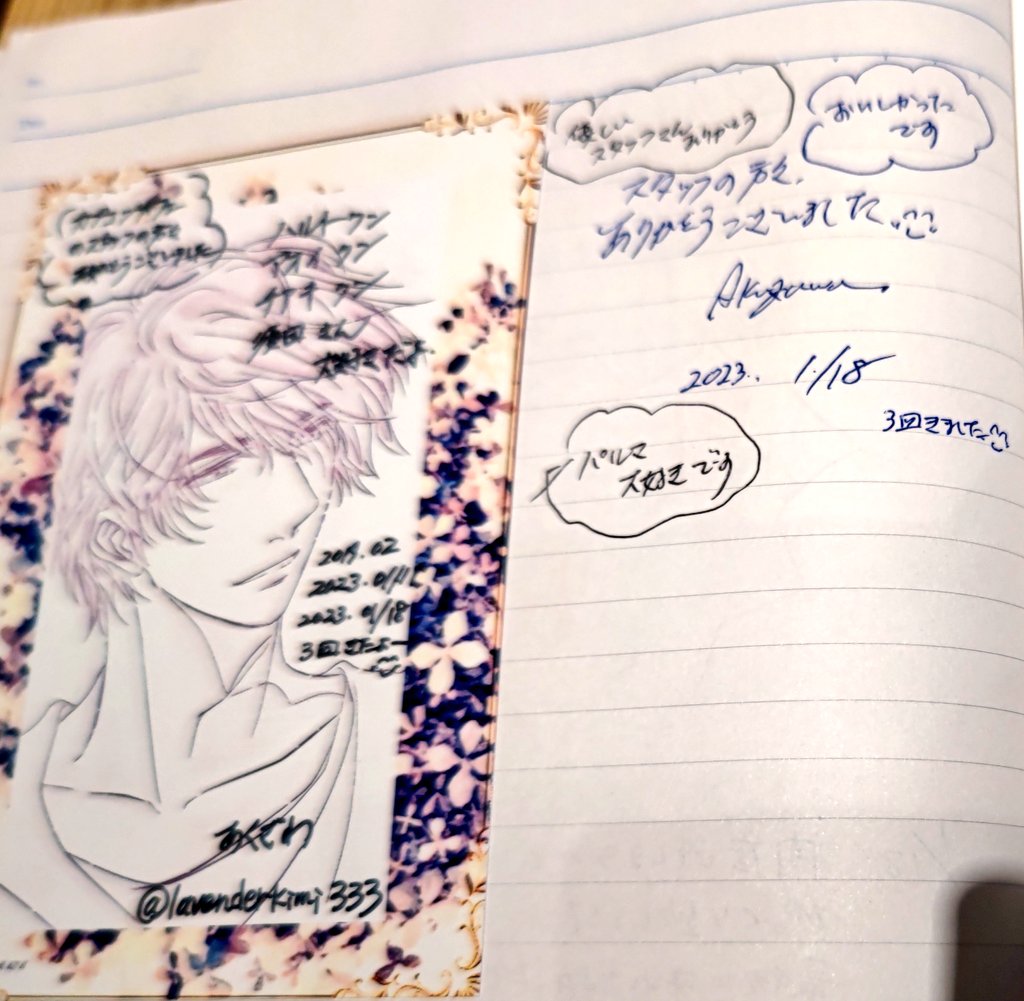 のスタッフの方々
ありがとうございました
ハルチークン
クン
クン
さん
大好きだよ
2019.02
2023.01/11
2023.01/18
3回きたよー
あくざわ
@lavenderkimi333
優しい
スタッフさんありがとう
おいしかった
です
スタッフの方々、
ありがとうございました
Akuzawa
2023. 1/18
3回きれた
パルマ
大好きです